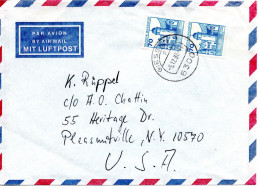 PAR AVION
BY AIR MAIL
MIT LUFTPOST
70
70
GIES
6300
K. Rüppel
c/o A.O. Chattin
55 Heritage Dr.
Pleasantville, N.Y. 10570
U.S.A